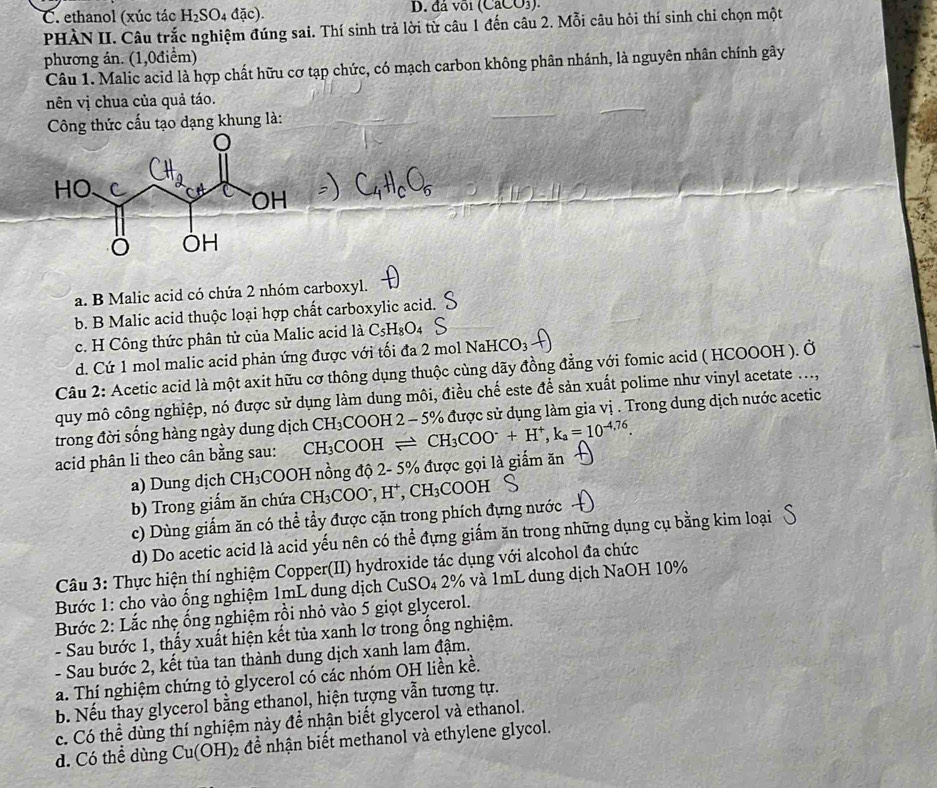 C. ethanol (xúc tác H₂SO₄ đặc). D. đá vôi (CaCO₃).
PHẦN II. Câu trắc nghiệm đúng sai. Thí sinh trả lời từ câu 1 đến câu 2. Mỗi câu hỏi thí sinh chỉ chọn một
phương án. (1,0điểm)
Câu 1. Malic acid là hợp chất hữu cơ tạp chức, có mạch carbon không phân nhánh, là nguyên nhân chính gây
nên vị chua của quả táo.
Công thức cấu tạo dạng khung là:
O
HO C CH₂ CH C OH => C₄H₆O₅
O OH
a. B Malic acid có chứa 2 nhóm carboxyl. Đ
b. B Malic acid thuộc loại hợp chất carboxylic acid. S
c. H Công thức phân tử của Malic acid là C₅H₈O₄ S
d. Cứ 1 mol malic acid phản ứng được với tối đa 2 mol NaHCO₃ Đ
Câu 2: Acetic acid là một axit hữu cơ thông dụng thuộc cùng dãy đồng đẳng với fomic acid ( HCOOOH ). Ở
quy mô công nghiệp, nó được sử dụng làm dung môi, điều chế este để sản xuất polime như vinyl acetate …,
trong đời sống hàng ngày dung dịch CH₃COOH 2 – 5% được sử dụng làm gia vị . Trong dung dịch nước acetic
acid phân li theo cân bằng sau: CH₃COOH ⇌ CH₃COO⁻ + H⁺, kₐ = 10⁻⁴,⁷⁶.
a) Dung dịch CH₃COOH nồng độ 2- 5% được gọi là giấm ăn Đ
b) Trong giấm ăn chứa CH₃COO⁻, H⁺, CH₃COOH S
c) Dùng giấm ăn có thể tẩy được cặn trong phích đựng nước Đ
d) Do acetic acid là acid yếu nên có thể đựng giấm ăn trong những dụng cụ bằng kim loại S
Câu 3: Thực hiện thí nghiệm Copper(II) hydroxide tác dụng với alcohol đa chức
Bước 1: cho vào ống nghiệm 1mL dung dịch CuSO₄ 2% và 1mL dung dịch NaOH 10%
Bước 2: Lắc nhẹ ống nghiệm rồi nhỏ vào 5 giọt glycerol.
- Sau bước 1, thấy xuất hiện kết tủa xanh lơ trong ống nghiệm.
- Sau bước 2, kết tủa tan thành dung dịch xanh lam đậm.
a. Thí nghiệm chứng tỏ glycerol có các nhóm OH liền kề.
b. Nếu thay glycerol bằng ethanol, hiện tượng vẫn tương tự.
c. Có thể dùng thí nghiệm này để nhận biết glycerol và ethanol.
d. Có thể dùng Cu(OH)₂ để nhận biết methanol và ethylene glycol.